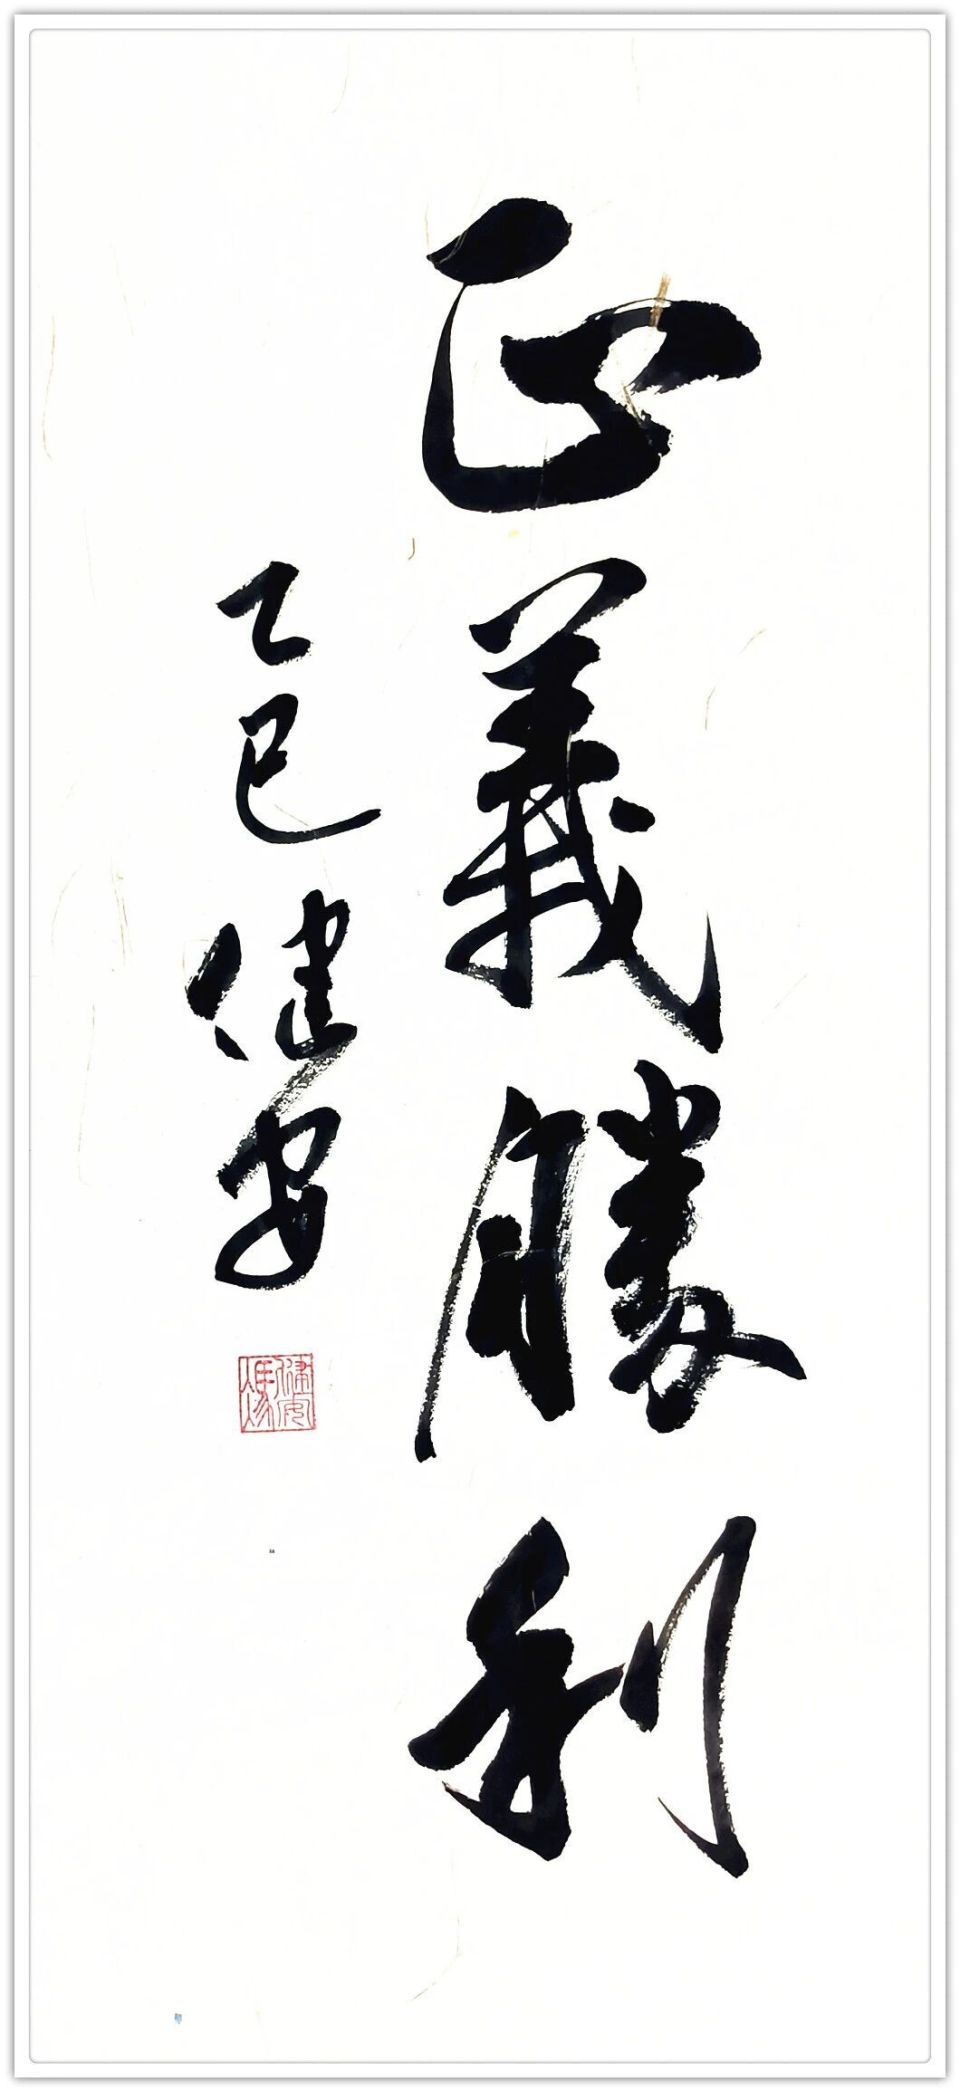 正義勝利
乙巳健安